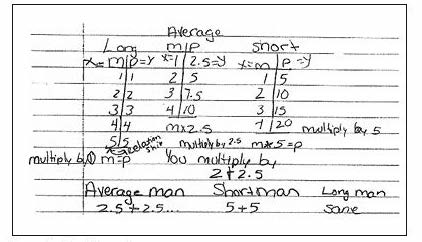 Average
Long m|p short
x=m|p=y x=1|2.5=y x=m|p=y
1|1 2|5 1|5
2|2 3|7.5 2|10
3|3 4|10 3|15
4|4 mx2.5 4|20 multiply by 5
5|5 relation ship multiply by 2.5 mx5=p
multiply by 1 m=p You multiply by
2+2.5
Average man Short man Long man
2.5+2.5... 5+5 same